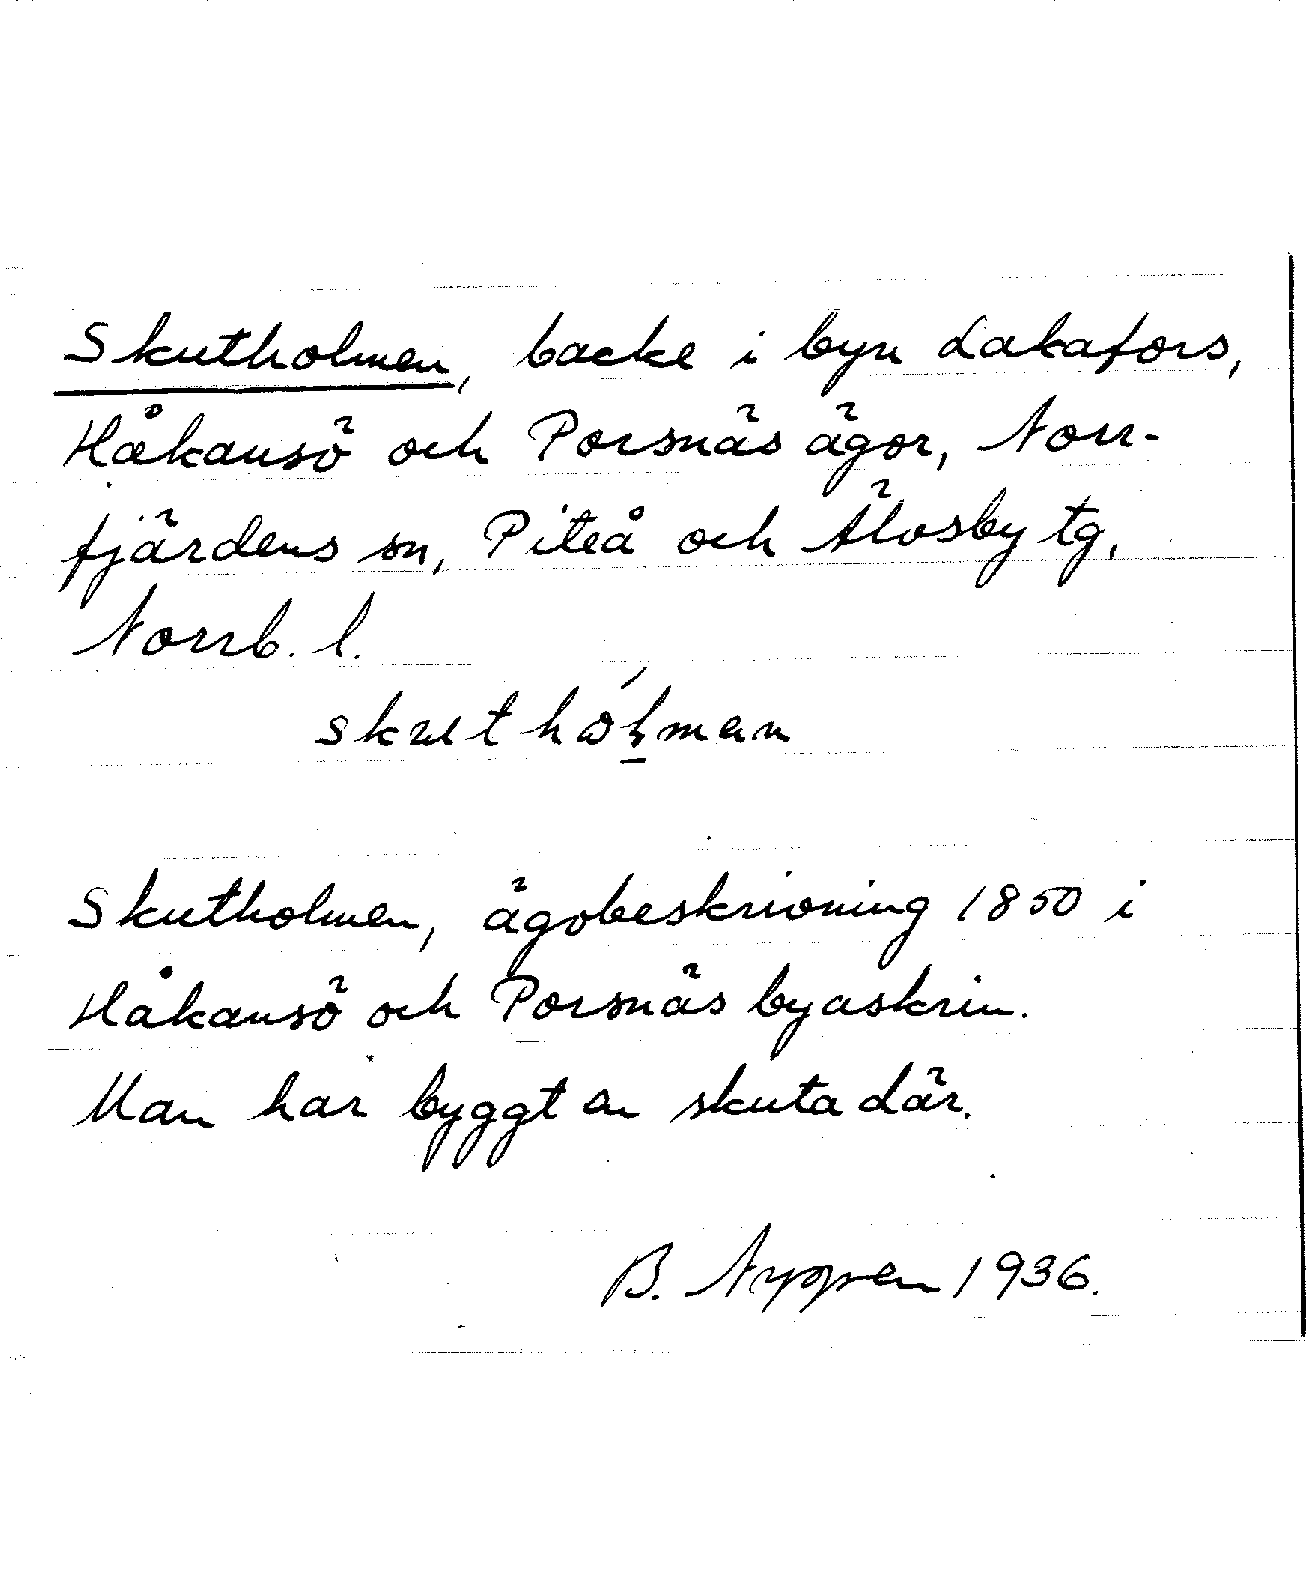 Skutholmen, backe i byn Lakafors,
Håkansö och Porsnäs ägor, Norr-
fjärdens sn, Piteå och Älvsby tg,
Norrb. l.
skuthólman
Skutholmen, ägobeskrivning 1850 i
Håkansö och Porsnäs byaskrin.
Man har byggt en skuta där.
B. 1936.